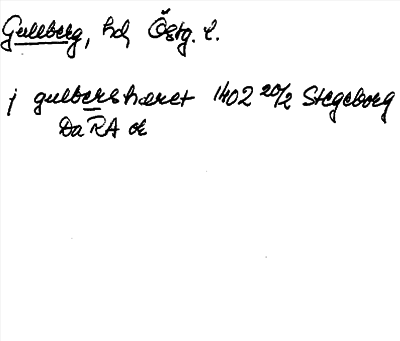 Gullberg, hd, Östg. l.
j gulbershæret 1402 20/2 Stegeborg
Da RA or